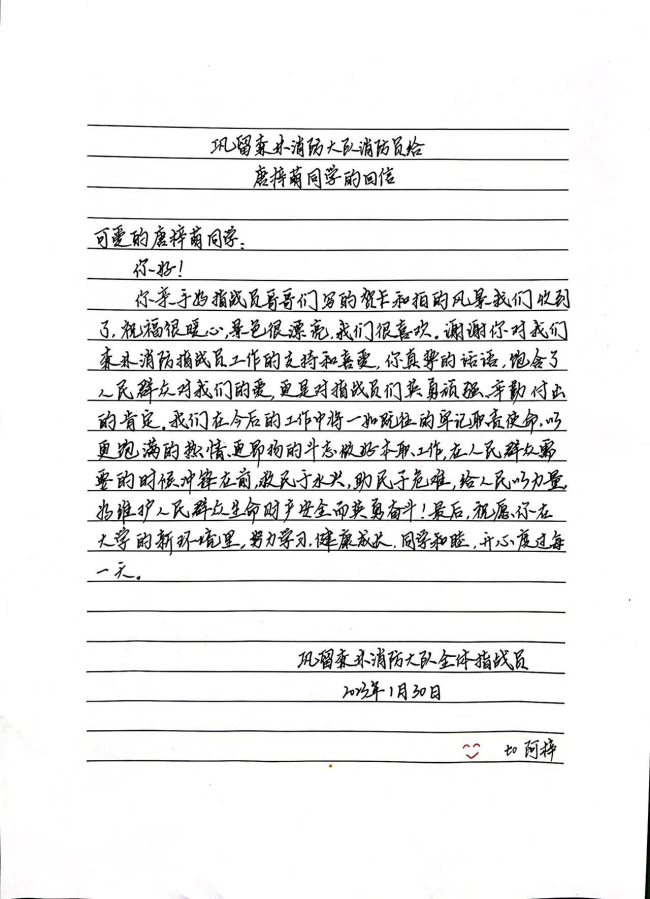 巩留森林消防大队消防员给
唐梓萌同学的回信
可爱的唐梓萌同学：
你好！
你亲手给指战员哥哥们写的贺卡和拍的风景我们收到
了，祝福很暖心，景色很漂亮，我们很喜欢。谢谢你对我们
森林消防指战员工作的支持和喜爱，你真挚的话语，饱含了
人民群众对我们的爱，更是对指战员们英勇顽强、辛勤付出
的肯定。我们在今后的工作中将一如既往的牢记职责使命，以
更饱满的热情、更昂扬的斗志做好本职工作，在人民群众需
要的时候冲锋在前，救民于水火，助民于危难，给人民以力量，
为维护人民群众生命财产安全而英勇奋斗！最后，祝愿你在
大学的新环境里，努力学习，健康成长，同学和睦，开心度过每
一天。
巩留森林消防大队全体指战员
2023年1月30日
to 阿梓